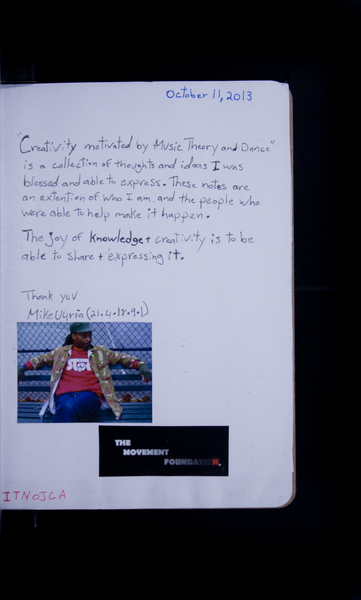 October 11, 2013
"Creativity motivated by Music Theory and Dance"
is a collection of thoughts and ideas I was
blessed and able to express. These notes are
an extention of who I am and the people who
were able to help make it happen.
The joy of knowledge + creativity is to be
able to share + expressing it.
Thank you
Mike (21.4.18.9.1)
THE
MOVEMENT
FOUNDATION.
ITNOJCA